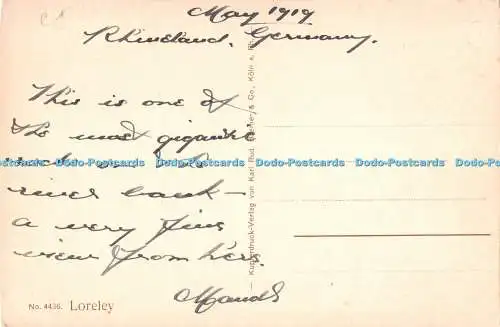 May 1919
Rhineland, Germany.
This is one of
the most gigantic
rock on the
river bank –
a very fine
view from here.
Maude
Kupferdruck-Verlag von Karl Rud. & Co., Köln a. Rh.
Dodo-Postcards Dodo-Postcards Dodo-Postcards Dodo-Postcards Dodo-Postcards
No. 4436. Loreley